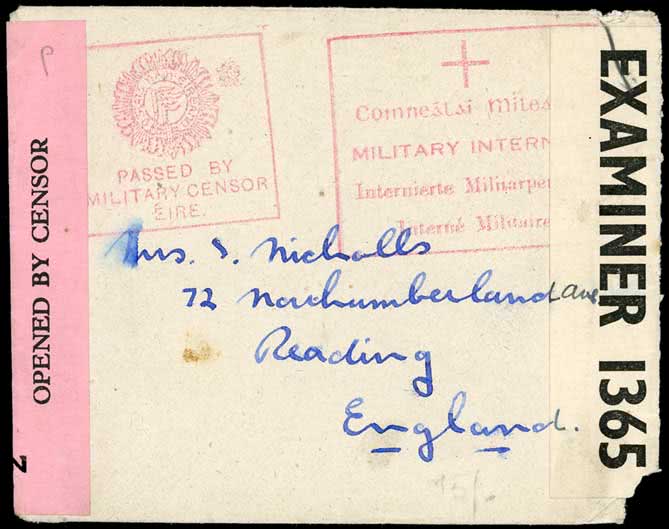 P
PASSED BY
MILITARY CENSOR
ÉIRE.
MILITARY INTERN
Internierte Militärper
Interné Militaire
Mrs. S. Nicholls
72 Northumberland Ave
Reading
England.
OPENED BY CENSOR
2
EXAMINER 1365
15/-